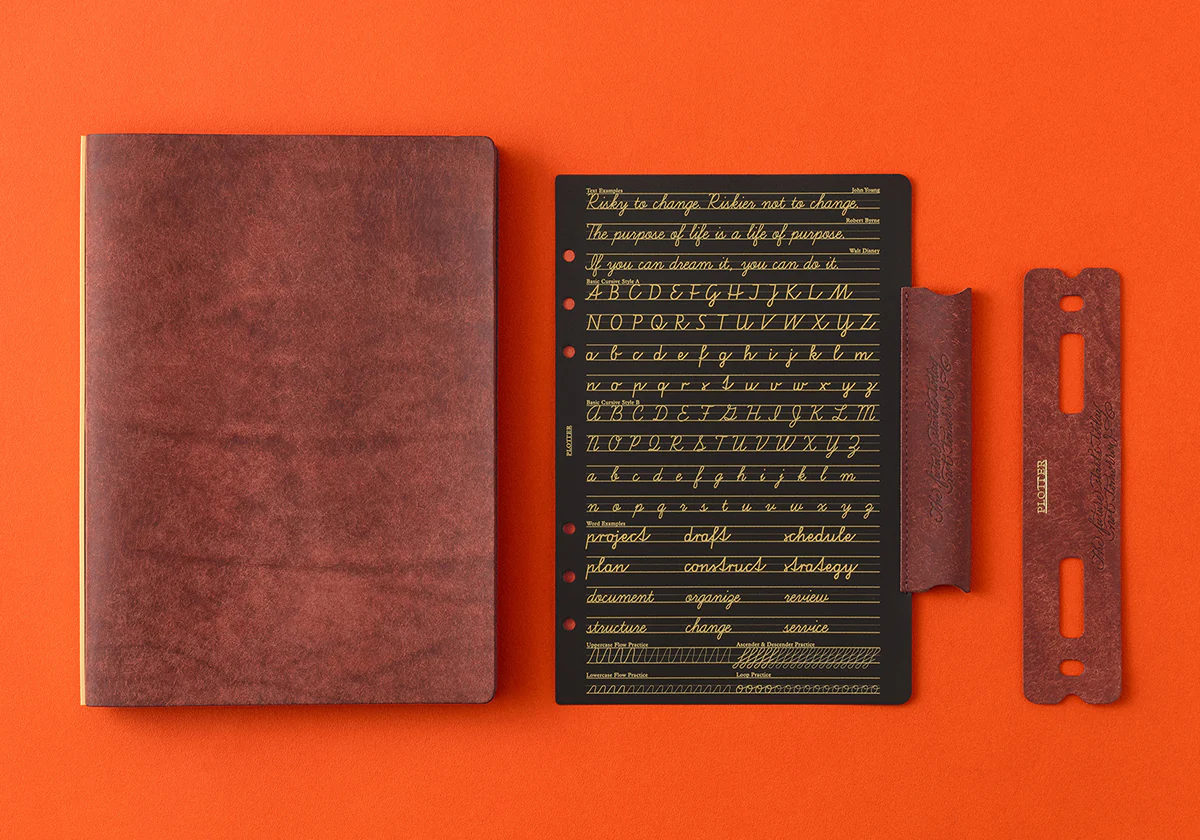 Text Examples
John Young
Risky to change. Riskier not to change.
Robert Byrne
The purpose of life is a life of purpose.
Walt Disney
If you can dream it, you can do it.
Basic Cursive Style A
A B C D E F G H I J K L M
N O P Q R S T U V W X Y Z
a b c d e f g h i j k l m
n o p q r s t u v w x y z
Basic Cursive Style B
A B C D E F G H I J K L M
N O P Q R S T U V W X Y Z
a b c d e f g h i j k l m
n o p q r s t u v w x y z
Word Examples
project draft schedule
plan construct strategy
document organize review
structure change service
Uppercase Flow Practice
Ascender & Descender Practice
Lowercase Flow Practice
Loop Practice
PLOTTER
PLOTTER